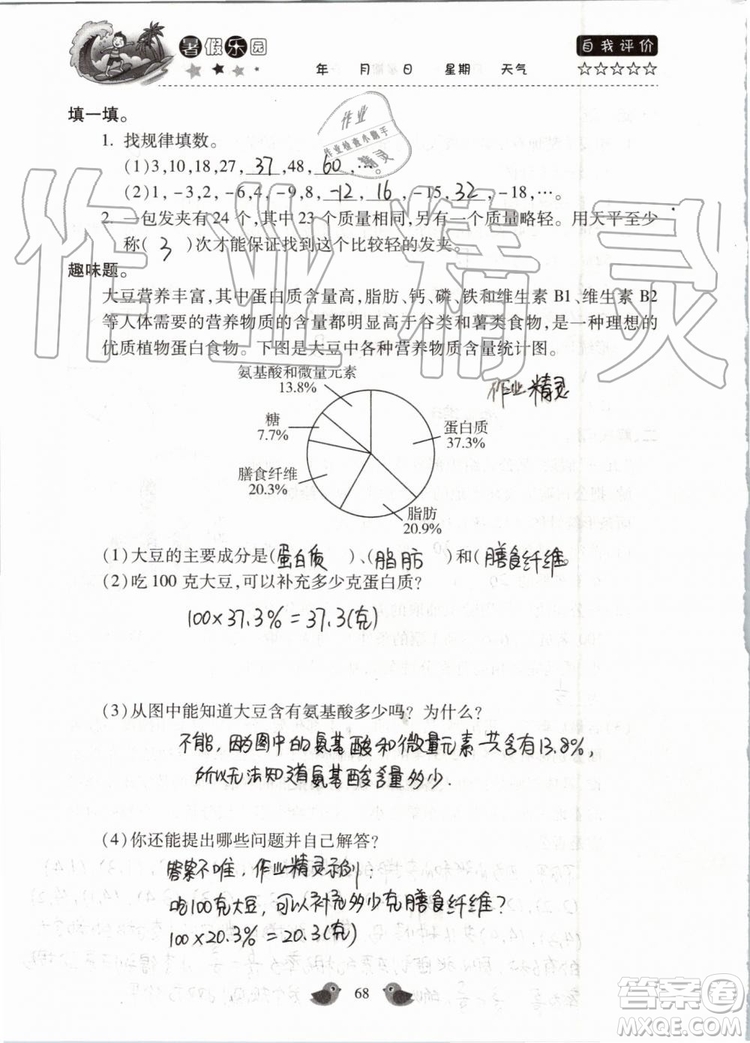 暑假乐园
自我评价
年 月 日 星期 天气
☆☆☆☆☆
填一填。
1. 找规律填数。
(1)3,10,18,27, 37 ,48, 60 ,…。
(2)1,-3,2,-6,4,-9,8, -12 , 16 ,-15, 32 ,-18,…。
2. 一包发夹有 24 个,其中 23 个质量相同,另有一个质量略轻。用天平至少
称( 3 )次才能保证找到这个比较轻的发夹。
趣味题。
大豆营养丰富,其中蛋白质含量高,脂肪、钙、磷、铁和维生素 B1、维生素 B2
等人体需要的营养物质的含量都明显高于谷类和薯类食物,是一种理想的
优质植物蛋白食物。下图是大豆中各种营养物质含量统计图。
氨基酸和微量元素
13.8%
作业精灵
糖
7.7%
蛋白质
37.3%
膳食纤维
20.3%
脂肪
20.9%
(1)大豆的主要成分是( 蛋白质 )、( 脂肪 )和( 膳食纤维 )。
(2)吃 100 克大豆,可以补充多少克蛋白质?
100×37.3%=37.3(克)
(3)从图中能知道大豆含有氨基酸多少吗? 为什么?
不能,因为图中的氨基酸和微量元素一共含有13.8%,
所以无法知道氨基酸含量多少.
(4)你还能提出哪些问题并自己解答?
答案不唯一,作业精灵示例:
吃100克大豆,可以补充多少克膳食纤维?
100×20.3%=20.3(克)
68
作业精灵
作业
作业检查小助手
精灵
答案圈
MXQE.COM